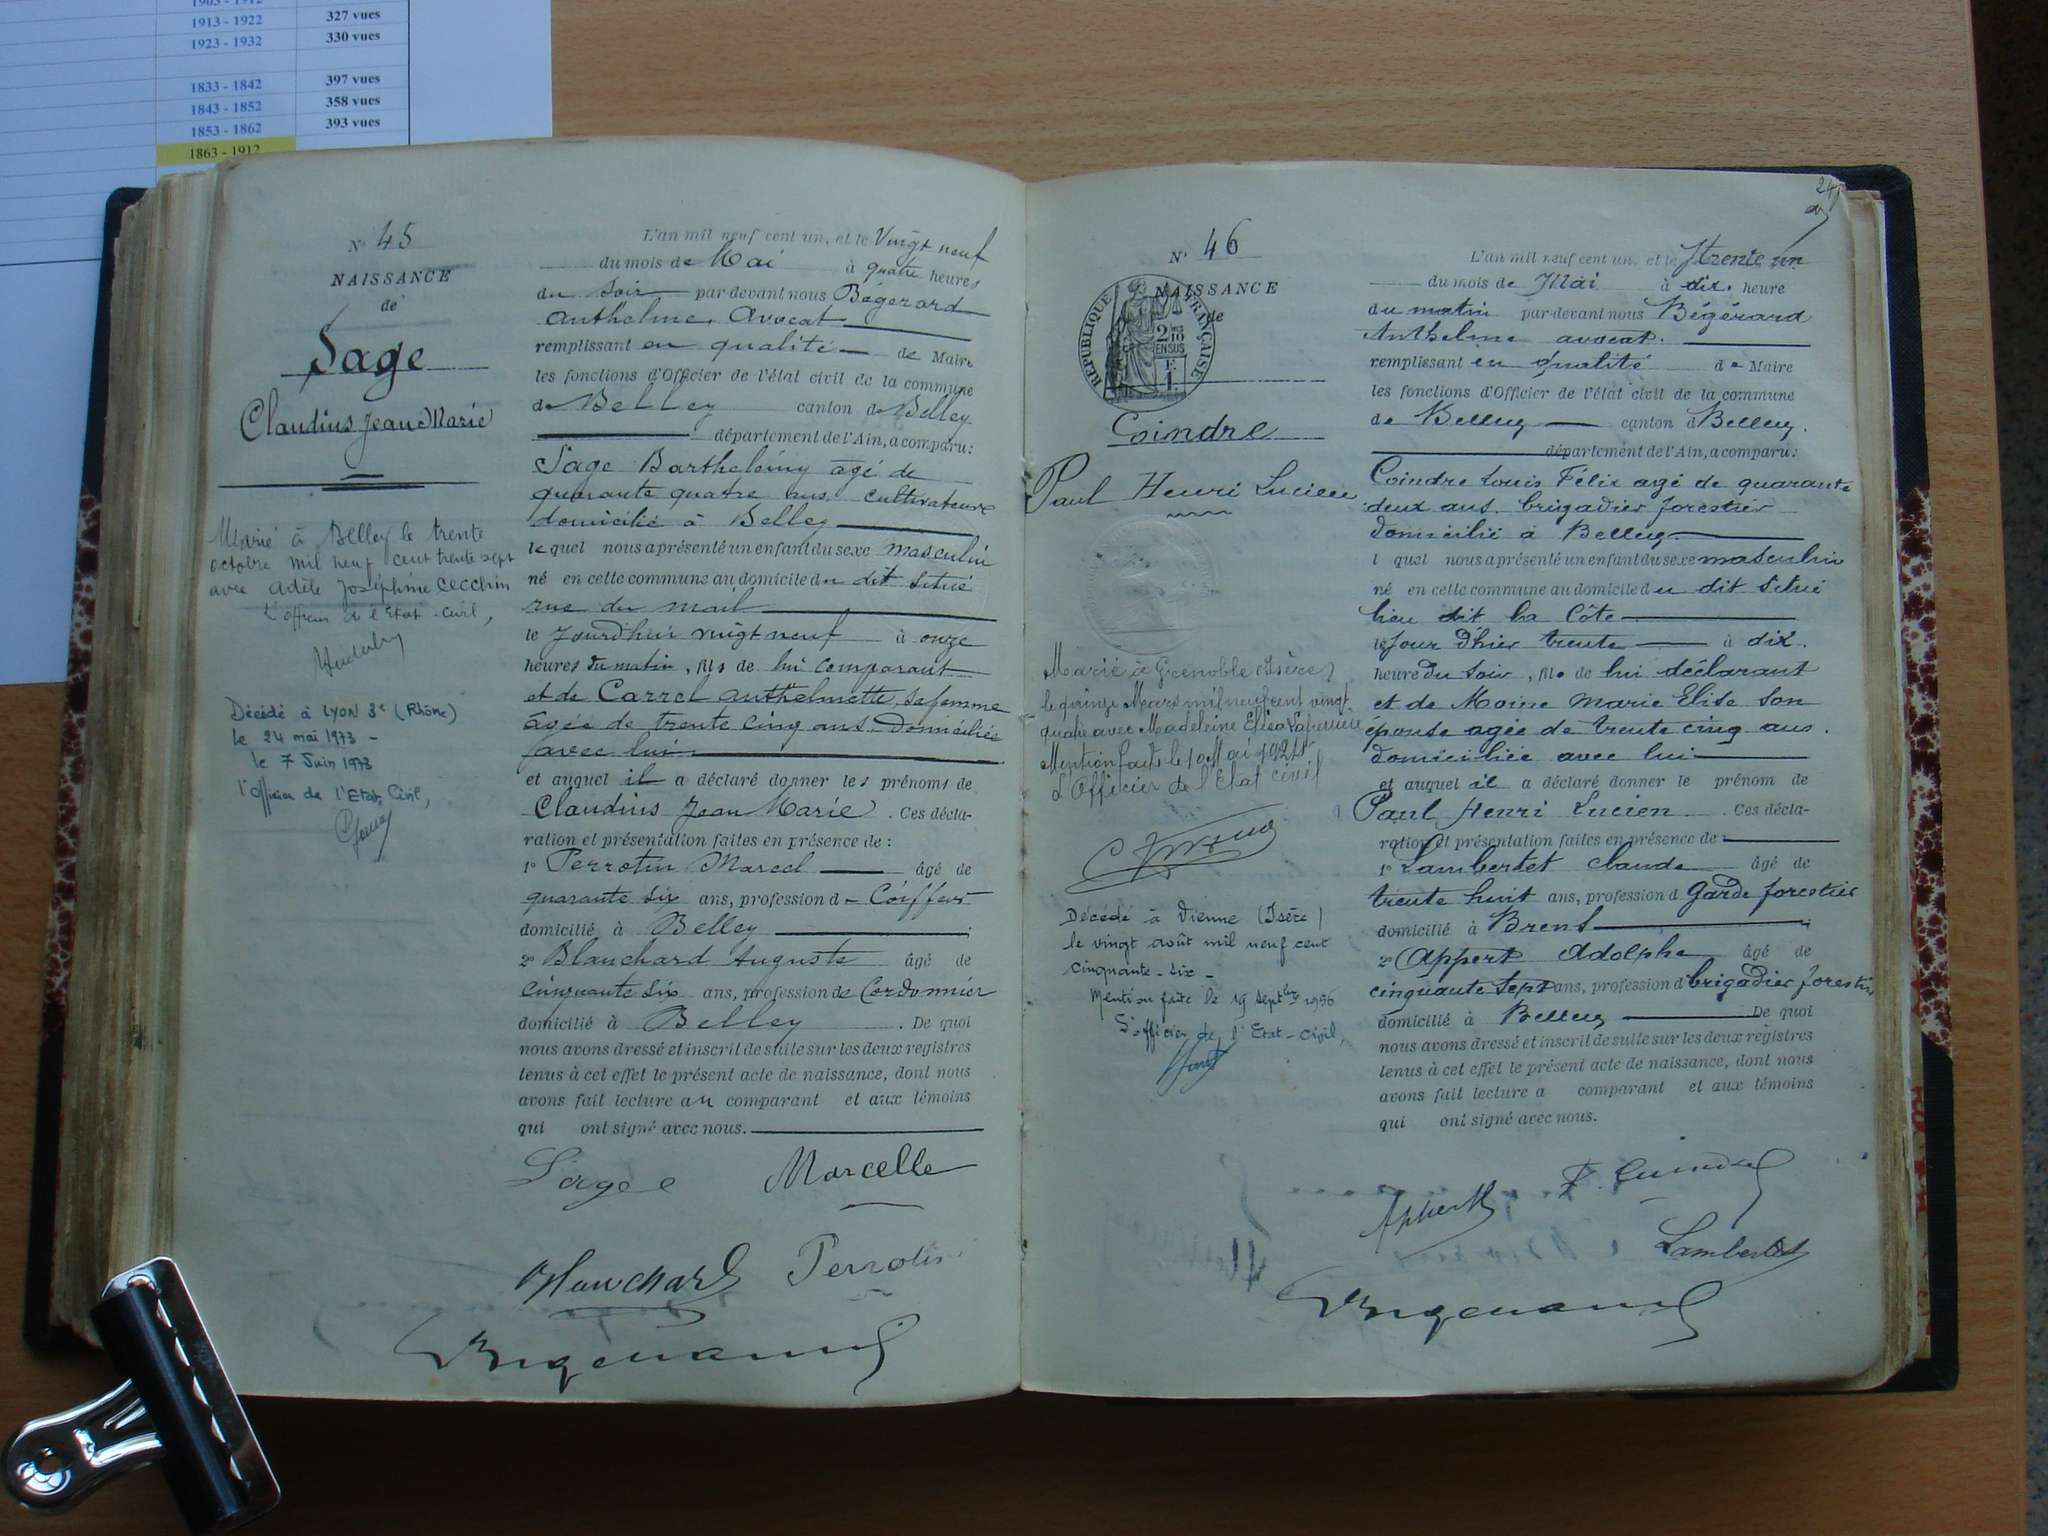 1913 - 1922 327 vues
1923 - 1932 330 vues
1833 - 1842 397 vues
1843 - 1852 358 vues
1853 - 1862 393 vues
1863 - 1912
N° 45
NAISSANCE
de
Sage
Claudius Jean Marie
Marié à Belley le trente
octobre mil neuf cent trente sept
avec Adèle Joséphine Cecchin
L'officier de l'Etat-civil,
Décédé à LYON 3e (Rhône)
le 24 mai 1973 -
le 7 Juin 1973
l'officier de l'Etat Civil,
L'an mil neuf cent un, et le Vingt neuf
du mois de Mai à quatre heures
du soir par-devant nous Bégerard
Anthelme, Avocat
remplissant en qualité de Maire
les fonctions d'Officier de l'état civil de la commune
de Belley canton de Belley
département de l'Ain, a comparu:
Sage Barthelémy âgé de
quarante quatre ans, cultivateur
domicilié à Belley
lequel nous a présenté un enfant du sexe masculin
né en cette commune au domicile du dit situé
rue du mail
le jourd'hui vingt neuf à onze
heures du matin, fils de lui comparant
et de Carrel anthelmette, sa femme
âgée de trente cinq ans. Domiciliée
avec lui
et auquel il a déclaré donner les prénoms de
Claudius Jean Marie. Ces décla-
ration et présentation faites en présence de :
1° Perrotin Marcel âgé de
quarante six ans, profession d- Coiffeur
domicilié à Belley
2° Blanchard Auguste âgé de
cinquante six ans, profession de Cordonnier
domicilié à Belley. De quoi
nous avons dressé et inscrit de suite sur les deux registres
tenus à cet effet le présent acte de naissance, dont nous
avons fait lecture au comparant et aux témoins
qui ont signé avec nous.
Marcelle
Blanchard Perrotin
24
N° 46
NAISSANCE
de
RÉPUBLIQUE FRANÇAISE
Coindre
Paul Henri Lucien
Marié à Grenoble (Isère)
le quinze Mars mil neuf cent vingt
quatre avec Madeleine Elisa
Mention faite le 10 Mai 1924
L'Officier de l'Etat civil
Décédé à Vienne (Isère)
le vingt août mil neuf cent
cinquante-six -
Mention faite le 19 septbre 1956
L'officier de l'Etat-civil,
L'an mil neuf cent un, et le trente un
du mois de Mai à dix heure
du matin par-devant nous Bégérard
Anthelme avocat.
remplissant en qualité de Maire
les fonctions d'Officier de l'état civil de la commune
de Belley canton d Belley.
département de l'Ain, a comparu:
Coindre Louis Félix agé de quarante
deux ans, brigadier forestier
domicilié à Belley
l quel nous a présenté un enfant du sexe masculin
né en cette commune au domicile du dit situé
lieu dit la Côte
le jour d'hier trente à dix
heure du soir, fils de lui déclarant
et de Moine Marie Elise son
épouse agée de trente cinq ans.
domiciliée avec lui
et auquel il a déclaré donner le prénom de
Paul Henri Lucien. Ces décla-
ration et présentation faites en présence de :
1° Lambertet Claude âgé de
trente huit ans, profession d Garde forestier
domicilié à Brens
2° Appert Adolphe âgé de
cinquante sept ans, profession d brigadier forestier
domicilié à Belley De quoi
nous avons dressé et inscrit de suite sur les deux registres
tenus à cet effet le présent acte de naissance, dont nous
avons fait lecture a comparant et aux témoins
qui ont signé avec nous.
Appert
Lambertet